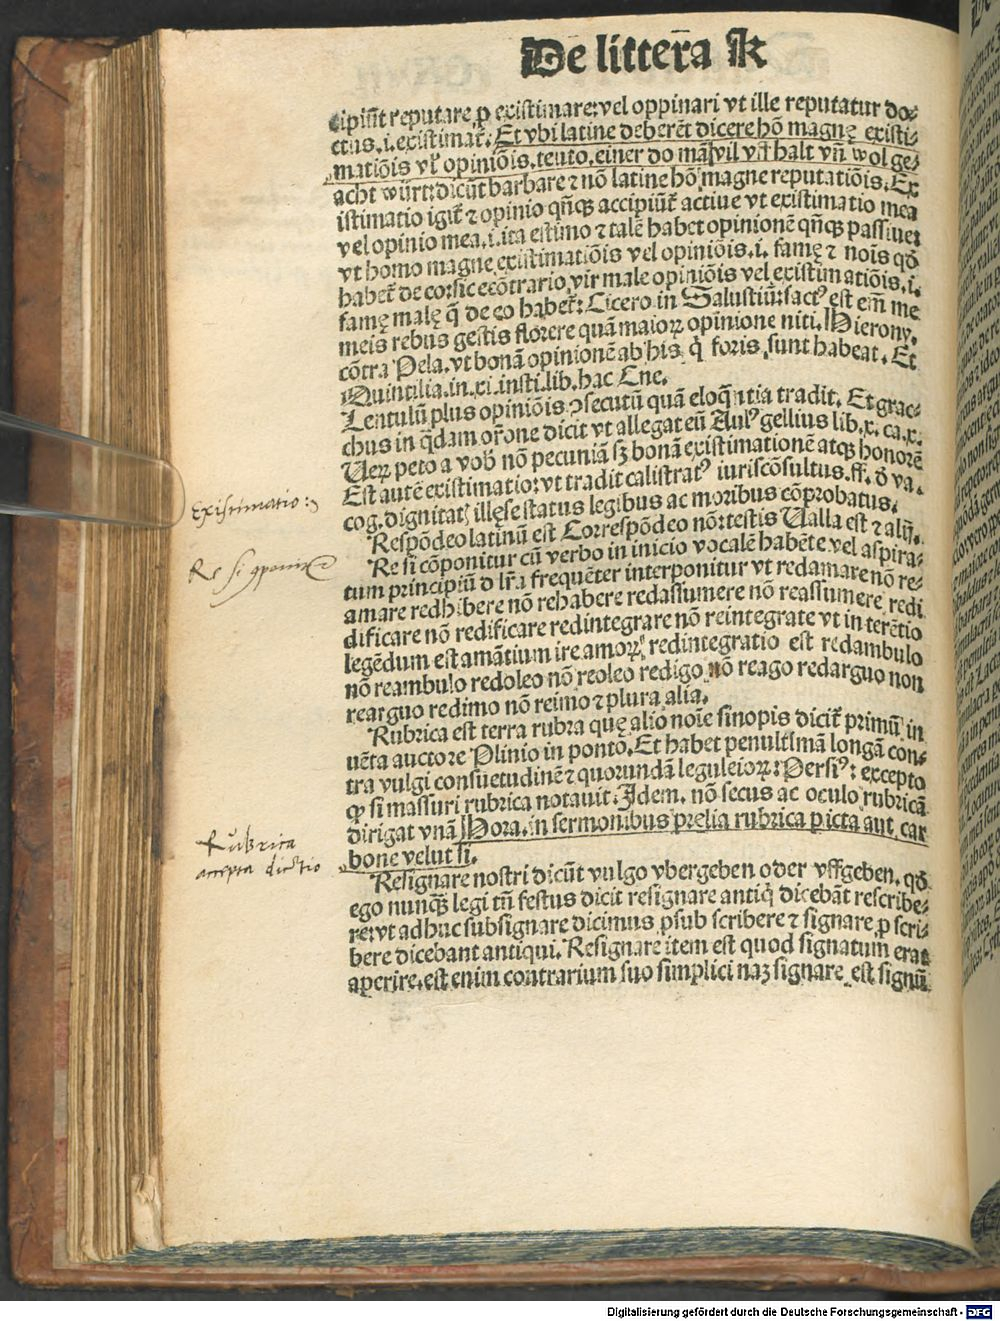 De littera R
cipiūt reputare ꝓ existimare: vel oppinari vt ille reputatur do⸗
ctus .i. existimat᷑: Et vbi latine deberēt dicere hō magnę existi⸗
matiōis vl̓ opiniōis, teuto. einer do
acht würt: dicūt barbare ⁊ nō latine hō magne reputatiōis. Ex
istimatio igit᷑ ⁊ opinio qn̄qꝫ accipiūt᷑ actiue vt existimatio mea
vel opinio mea .i. ita estimo ⁊ talē habet opinionē qn̄qꝫ passiue:
vt homo magne existimatiōis vel opiniōis .i. famę ⁊ noīs qđ
habet᷑ de eo: sic ecōtrario vir male opiniōis vel existimatiōis .i.
famę malę q̄ de eo habet᷑: Cicero in Salustiū: satꝰ est em̄ me
meis rebus gestis florere quā maioꝝ opinione niti. Hierony.
cōtra Pela. vt bonā opinionē ab his q̇ foris sunt habeat. Et
Quintilia. in .xi. insti. lib. hac Cne.
Lentulū plus opiniōis ꝯsecutū quā eloq̄ntia tradit. Et grac⸗
chus in q̇dam or̄one dicit vt allegat eū Aulꝰ gellius lib. x. ca. x.
Veꝝ peto a vob̓ nō pecuniā sꝫ bonā existimationē atqꝫ honorē
Est autē existimatio: vt tradit calistratꝰ iuriscōsultus .ff. đ va.
cog. dignitat᷑ illęse status legibus ac moribus cōprobatus.
Respōdeo latinū est Correspōdeo nō: testis Valla est ⁊ alij.
Re si cōponitur cū verbo in inicio vocalē habēte vel aspira⸗
tum principiū đ lr̄a frequēter interponitur vt redamare nō re⸗
amare redhibere nō rehabere redassumere nō reassumere redi
dificare nō redificare redintegrare nō reintegrate vt in terētio
legēdum est amātium ire amoꝝ redintegratio est redambulo
nō reambulo redoleo nō reoleo redigo nō reago redarguo non
rearguo redimo nō reimo ⁊ plura alia.
Rubrica est terra rubra quę alio noīe sinopis dicit᷑ primū in
uēta auctore Plinio in ponto. Et habet penultimā longā con⸗
tra vulgi consuetudinē ⁊ quorundā leguleioꝝ: Persiꝰ: excepto
ꝙ si massuri rubrica notauit. Idem. nō secus ac oculo rubricā
dirigat vnā Hora. in sermonibus prelia rubrica picta aut car
bone velut si.
Resignare nostri dicūt vulgo vbergeben oder vffgeben. qđ
ego nunqꝫ legi tn̄ festus dicit resignare antiq̇ dicebāt rescribe⸗
re: vt adhuc subsignare dicimus ꝓ sub scribere ⁊ signare ꝓ scri⸗
bere dicebant antiqui. Resignare item est quod signatum erat
aperire. est enim contrarium suo simplici naꝫ signare est signū
Existimatio:
Re si ꝯponit᷑
Rubrica
accepta dictio
Digitalisierung gefördert durch die Deutsche Forschungsgemeinschaft - DFG